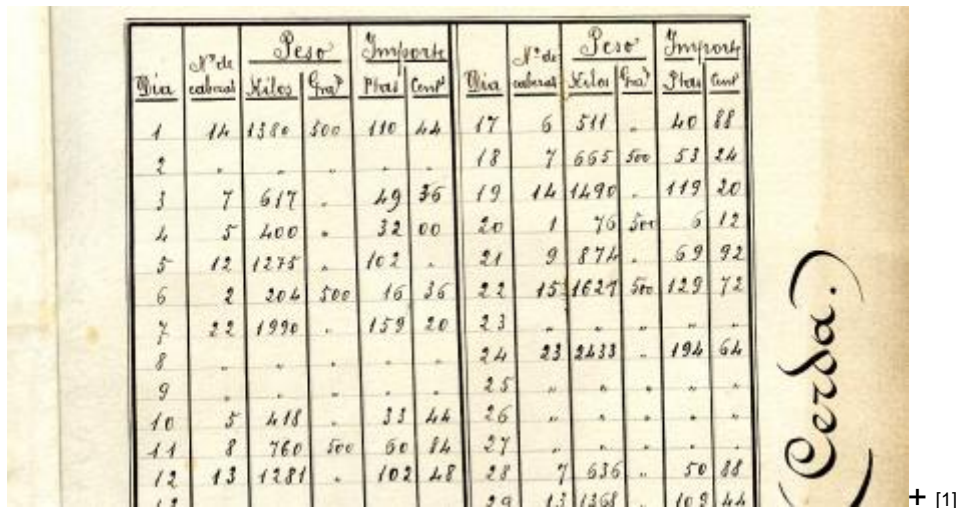 Peso Importe Peso Importe
Día Nº de cabezas Kilos Gras Ptas Cents Día Nº de cabezas Kilos Gras Ptas Cents
1 14 1380 500 110 44 17 6 511 " 40 88
2 " " " " " 18 7 665 500 53 24
3 7 617 " 49 36 19 14 1490 " 119 20
4 5 400 " 32 00 20 1 76 500 6 12
5 12 1275 " 102 " 21 9 874 " 69 92
6 2 204 500 16 36 22 15 1621 500 129 72
7 22 1990 " 159 20 23 " " " " "
8 " " " " " 24 23 2433 " 194 64
9 " " " " " 25 " " " " "
10 5 418 " 33 44 26 " " " " "
11 8 760 500 60 84 27 " " " " "
12 13 1281 " 102 48 28 7 636 " 50 88
29 13 1368 " 109 44
(Cerda.)
+ [1]